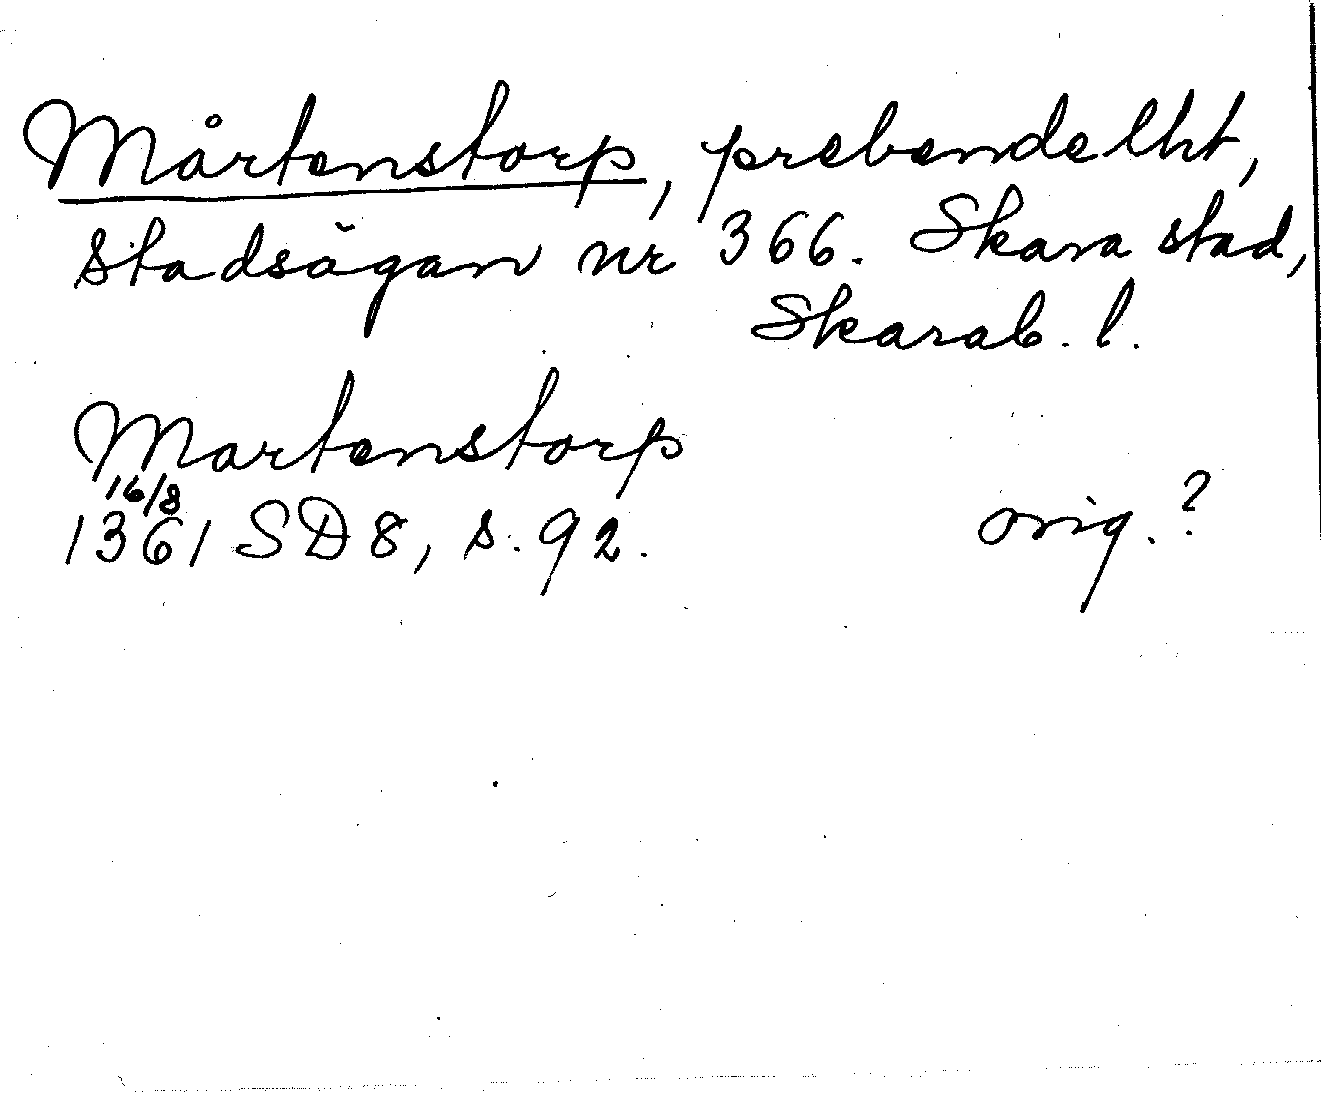 Mårtenstorp, prebendelht,
Stadsägan nr 366. Skara stad,
Skarab. l.
Martenstorp
16/8
1361 SD 8, s. 92. orig.?